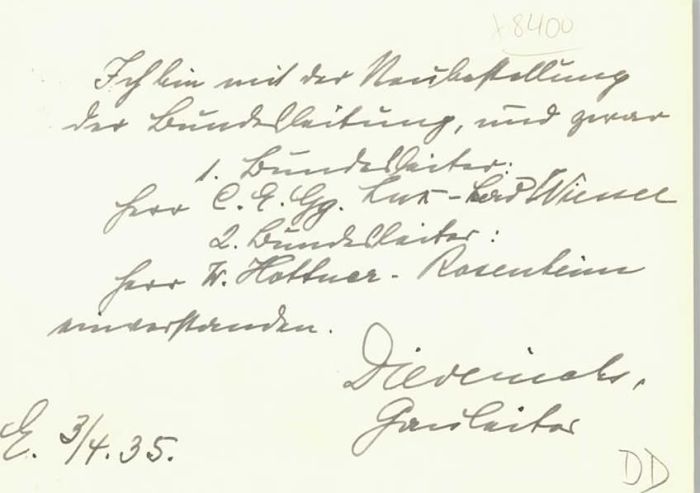 +8400
Ich bin mit der Neubestellung
der Bundesleitung, und zwar
1. Bundesleiter:
Herr C. E. Gg. Lux - Wiesee
2. Bundesleiter:
Herr W. Hottner - Rosenheim
einverstanden.
Gauleiter
E. 3/4.35.
DD